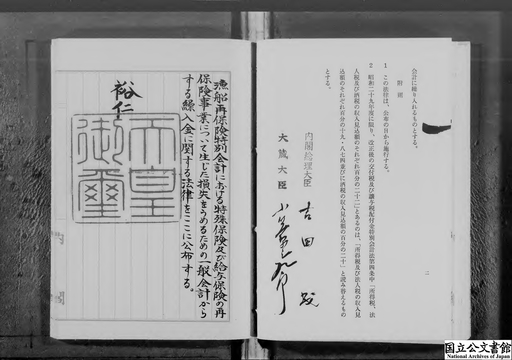 会計に繰り入れるものとする。
附則
1 この法律は、公布の日から施行する。
2 昭和二十九年度に限り、改正後の交付税及び譲与税配付金特別会計法第四条中「所得税、法
人税及び酒税の収入見込額のそれぞれ百分の二十二」とあるのは、「所得税及び法人税の収入見
込額のそれぞれ百分の十九・八七四並びに酒税の収入見込額の百分の二十」と読み替えるもの
とする。
二
内閣総理大臣 吉田茂
大蔵大臣
漁船再保険特別会計における特殊保険及び給与保険の再
保険事業について生じた損失をうめるための一般会計から
する繰入金に関する法律をここに公布する。
裕仁
天皇
御璽
国立公文書館
National Archives of Japan